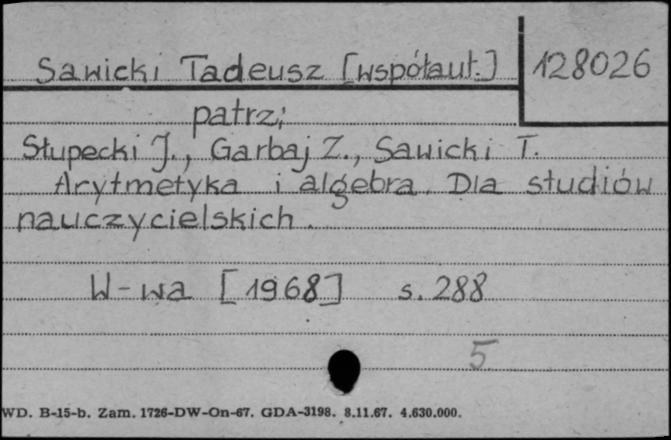 Sawicki Tadeusz [współaut.] 128026
patrz:
Słupecki J., Garbaj Z., Sawicki T.
Arytmetyka i algebra. Dla studiów
nauczycielskich.
W-wa [1968] s. 288
5
WD. B-15-b. Zam. 1726-DW-On-67. GDA-3198. 8.11.67. 4.630.000.